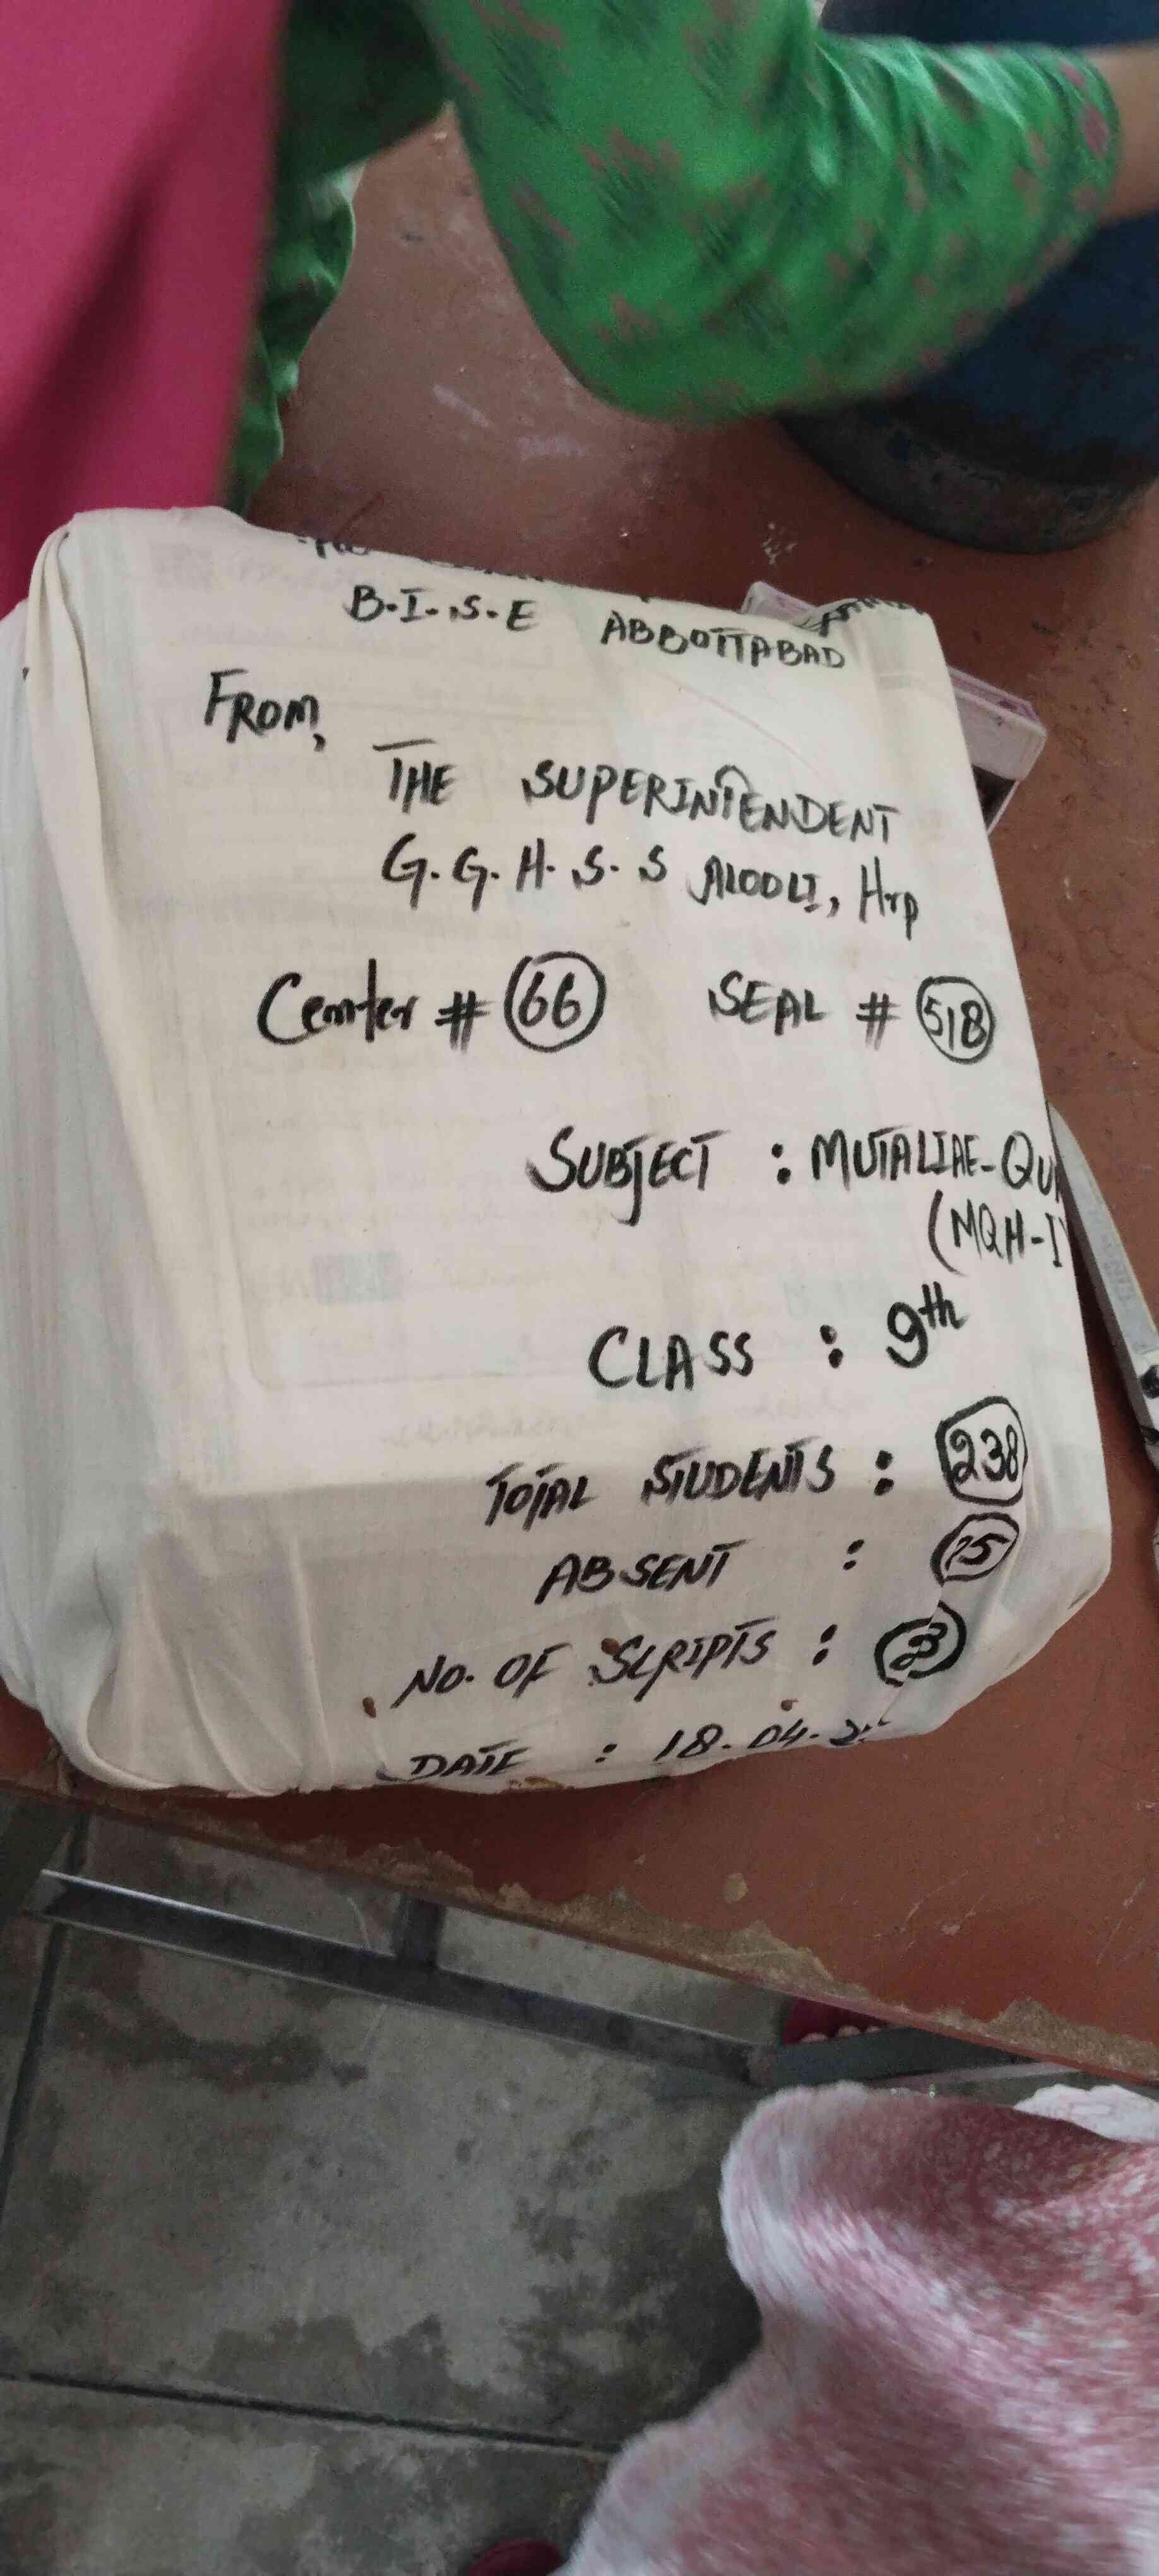 B.I.S.E ABBOTTABAD
FROM,
THE SUPERINTENDENT
G.G.H.S.S ALOOLI, Hrp
Center # 66 SEAL # 518
SUBJECT : MUTALIAE-QU
(MQH-I
CLASS : 9th
TOTAL STUDENTS : 238
ABSENT : 15
NO. OF SCRIPTS :
DATE : 18.04.2